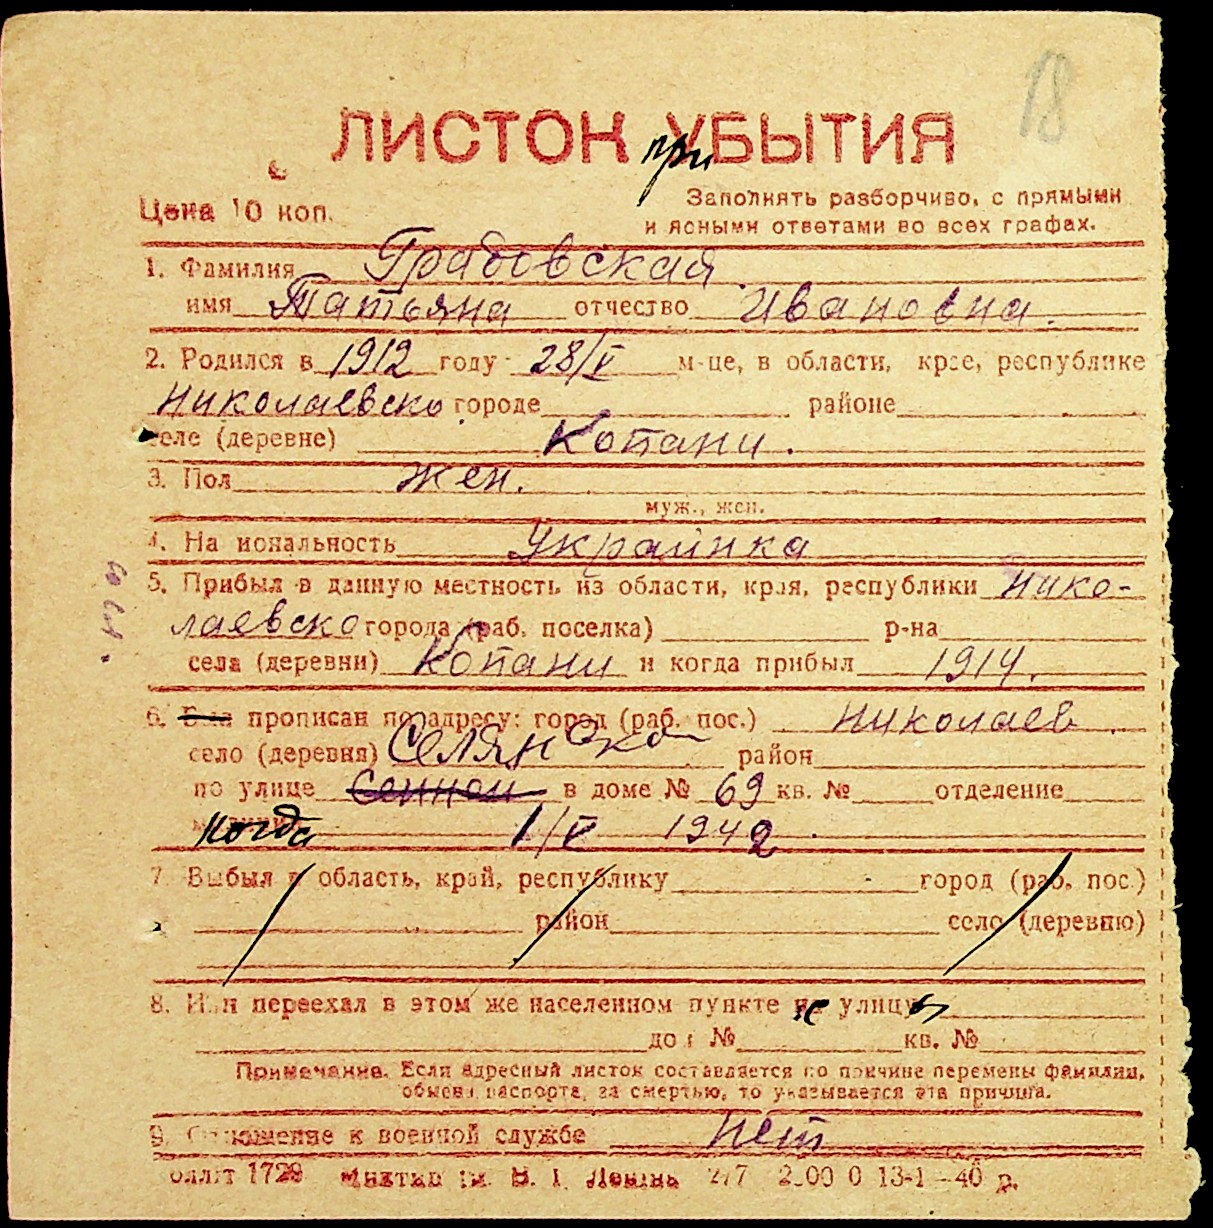 18
ЛИСТОК УБЫТИЯ
при
Цена 10 коп.
Заполнять разборчиво, с прямыми
и ясными ответами во всех графах.
1. Фамилия Грабовская
имя Татьяна отчество Ивановна.
2. Родился в 1912 году 28/V м-це, в области, крае, республике
Николаевско городе районе
селе (деревне) Копани.
3. Пол жен.
муж., жен.
4. Национальность Украинка
5. Прибыл в данную местность из области, края, республики Нико-
лаевско города (раб. поселка) р-на
села (деревни) Копани и когда прибыл 1914.
6. Был прописан по адресу: город (раб. пос.) Николаев
село (деревня) Селянско район
по улице Сенной в доме № 69 кв. № отделение
когда 1/V 1942.
7. Выбыл в область, край, республику город (раб. пос.)
район село (деревню)
8. Или переехал в этом же населенном пункте не улицу
дом № кв. №
Примечание. Если адресный листок составляется по причине перемены фамилии,
обмена паспорта, за смертью, то указывается эта причина.
9. Отношение к военной службе нет
1729 В. І. 13-1-40 р.